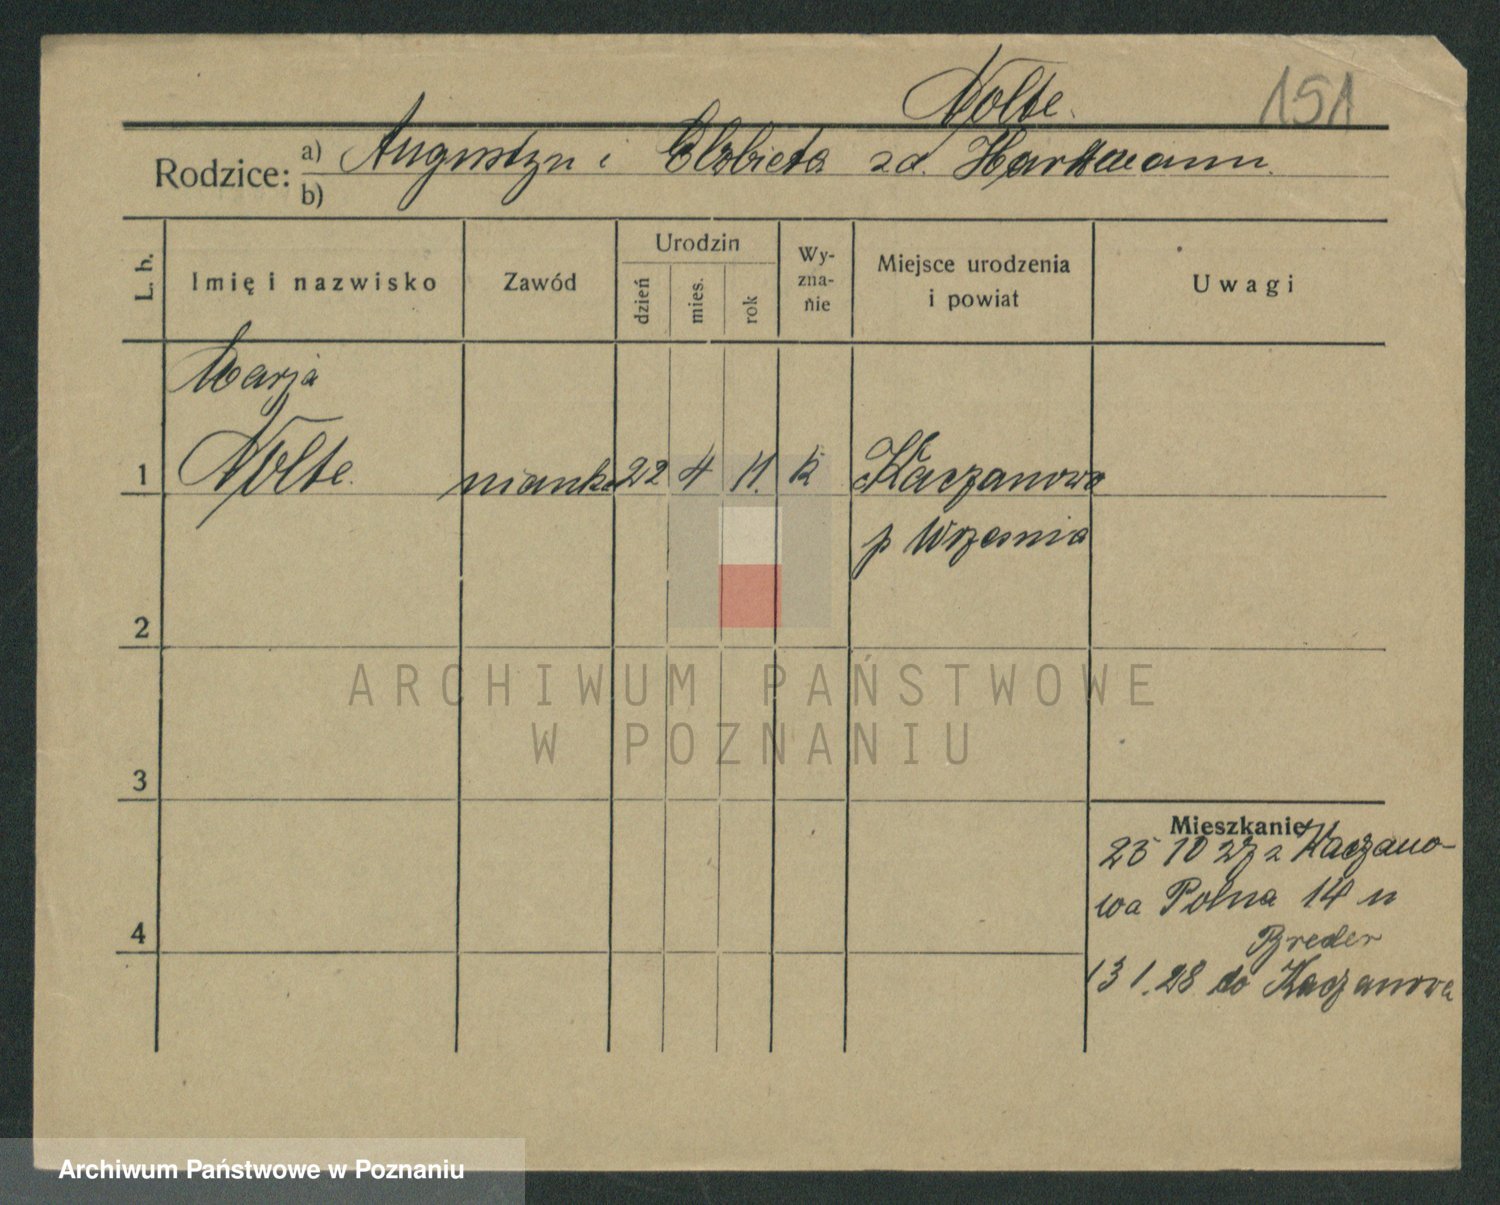 Nolte.
151
Rodzice: a) Augustyn i Elżbieta zd. Hartmann.
b)
L. b.
Imię i nazwisko
Zawód
Urodzin
dzień
mies.
rok
Wy-
zna-
nie
Miejsce urodzenia
i powiat
Uwagi
Marja
1 Nolte. nianka 22 4 11. k Kaczanowo
p Wrzesnia
2
ARCHIWUM PAŃSTWOWE
W POZNANIU
3
Mieszkanie
25 10 27 z Kaczano-
wa Polna 14 u
Breder
4
13 1.28 do Kaczanowa
Archiwum Państwowe w Poznaniu